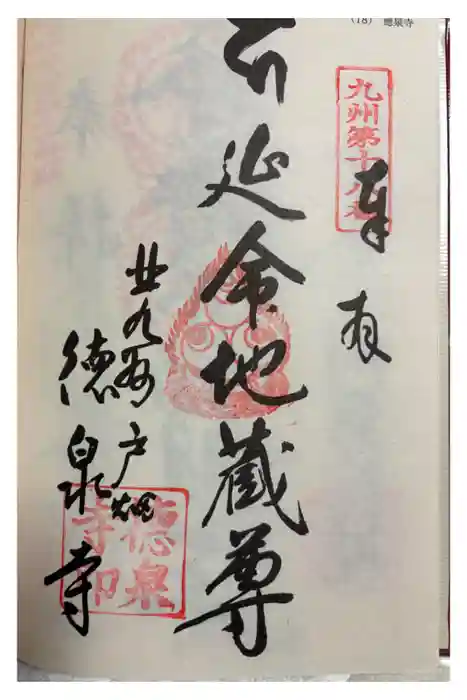 (18) 徳泉寺
九州第十八番
延命地蔵尊
北九州戸畑
徳泉寺
德泉
寺印